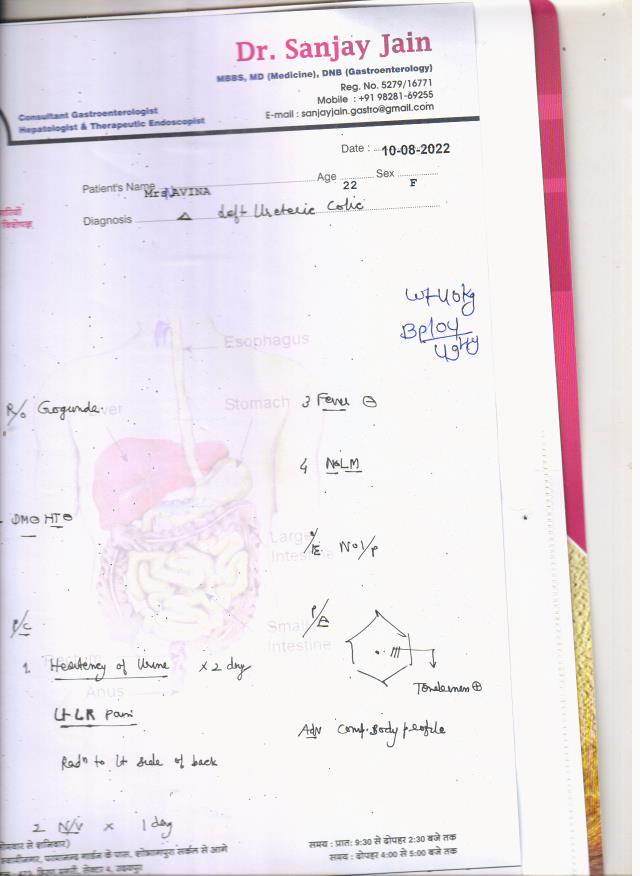 Dr. Sanjay Jain
MBBS, MD (Medicine), DNB (Gastroenterology)
Reg. No. 5279/16771
Mobile : +91 98281-69255
E-mail : sanjayjain.gastro@gmail.com
Consultant Gastroenterologist
Hepatologist & Therapeutic Endoscopist
Date : 10-08-2022
Patient's Name Mrs AVINA Age 22 Sex F
Diagnosis Δ Left Ureteric Colic
Wt 40kg
Bp 104
Esophagus
R/o Gogunda
Liver
Stomach
3 Fever ⊖
4 NLM
DM⊖ HT⊖
Large
Intestine
No I/P
P/C
P/A
Small
Intestine
Rectum
1 Hesitency of Urine x 2 day
Anus
Tenderness ⊕
Lt LR Pain
Adv Comp. Body profile
Radn to Lt side of back
2 N/V x 1 day
समय : प्रातः 9:30 से दोपहर 2:30 बजे तक
समय : दोपहर 4:00 से 5:00 बजे तक